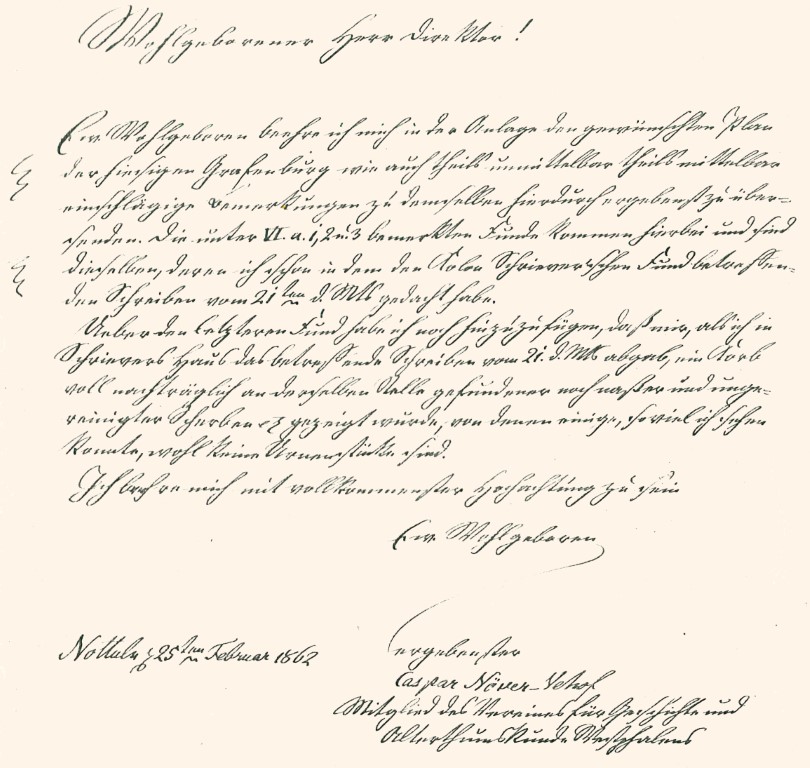 Wohlgeborener Herr Direktor!
Ew. Wohlgeboren beehre ich mich in der Anlage den gewünschten Plan
der hiesigen Grafenburg wie auch theils unmittelbar theils mittelbar
einschlägige Bemerkungen zu demselben hierdurch ergebenst zu über=
senden. Die unter VI. a. 1, 2 u. 3 bemerkten Funde kommen hierbei und sind
dieselben, deren ich schon in dem den Kolon Schriever'schen Fund betreffen=
den Schreiben vom 21ten d. Mts gedacht habe.
Ueber den letzteren Fund habe ich noch hinzuzufügen, daß mir, als ich in
Schrievers Haus das betreffende Schreiben vom 21. d. Mts abgab, ein Korb
voll nachträglich an derselben Stelle gefundener noch naßer und unge=
reinigter Scherben gezeigt wurde, von denen einige, soviel ich sehen
konnte, wohl keine Urnenstücke sind.
Ich beehre mich mit vollkommenster Hochachtung zu sein
Ew. Wohlgeboren
Nottuln 25ten Februar 1862
ergebenster
Caspar Növer-
Mitglied des Vereines für Geschichte und
Alterthumskunde Westphalens